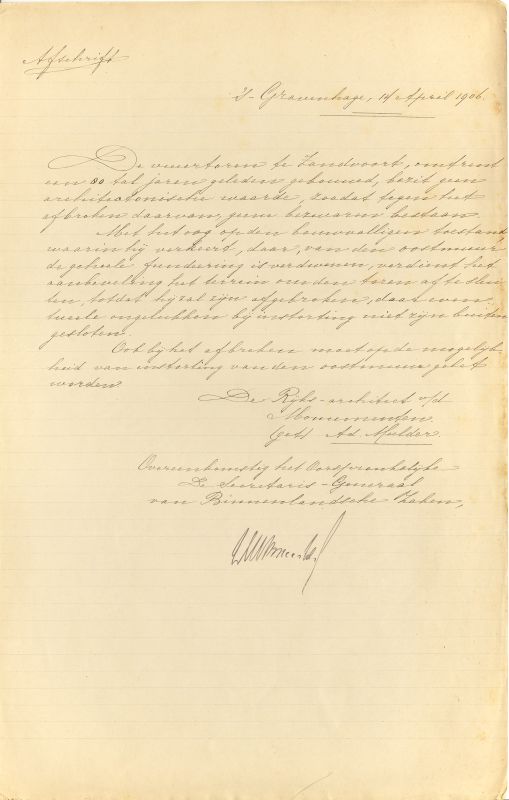 Afschrift
's-Gravenhage, 14 April 1906.
De vuurtoren te Zandvoort, omstreeks
een 80 tal jaren geleden gebouwd, bezit geen
architectonische waarde, zoodat tegen het
afbreken daarvan geene bezwaren bestaan.
Met het oog op den bouwvalligen toestand
waarin hij verkeerd, daar, van den oostmuur
de geheele fundering is verdwenen, verdient het
aanbeveling het terrein om den toren af te slui-
ten, totdat hij zal zijn afgebroken, daar even-
tueele ongelukken bij instorting niet zijn buiten
gesloten.
Ook bij het afbreken moet op de mogelijk-
heid van instorting van den oostmuur gelet
worden.
De Rijks-architect v/d
Monumenten.
(get) Ad. Mulder.
Overeenkomstig het Oorspronkelijke
De Secretaris-Generaal
van Binnenlandsche Zaken,